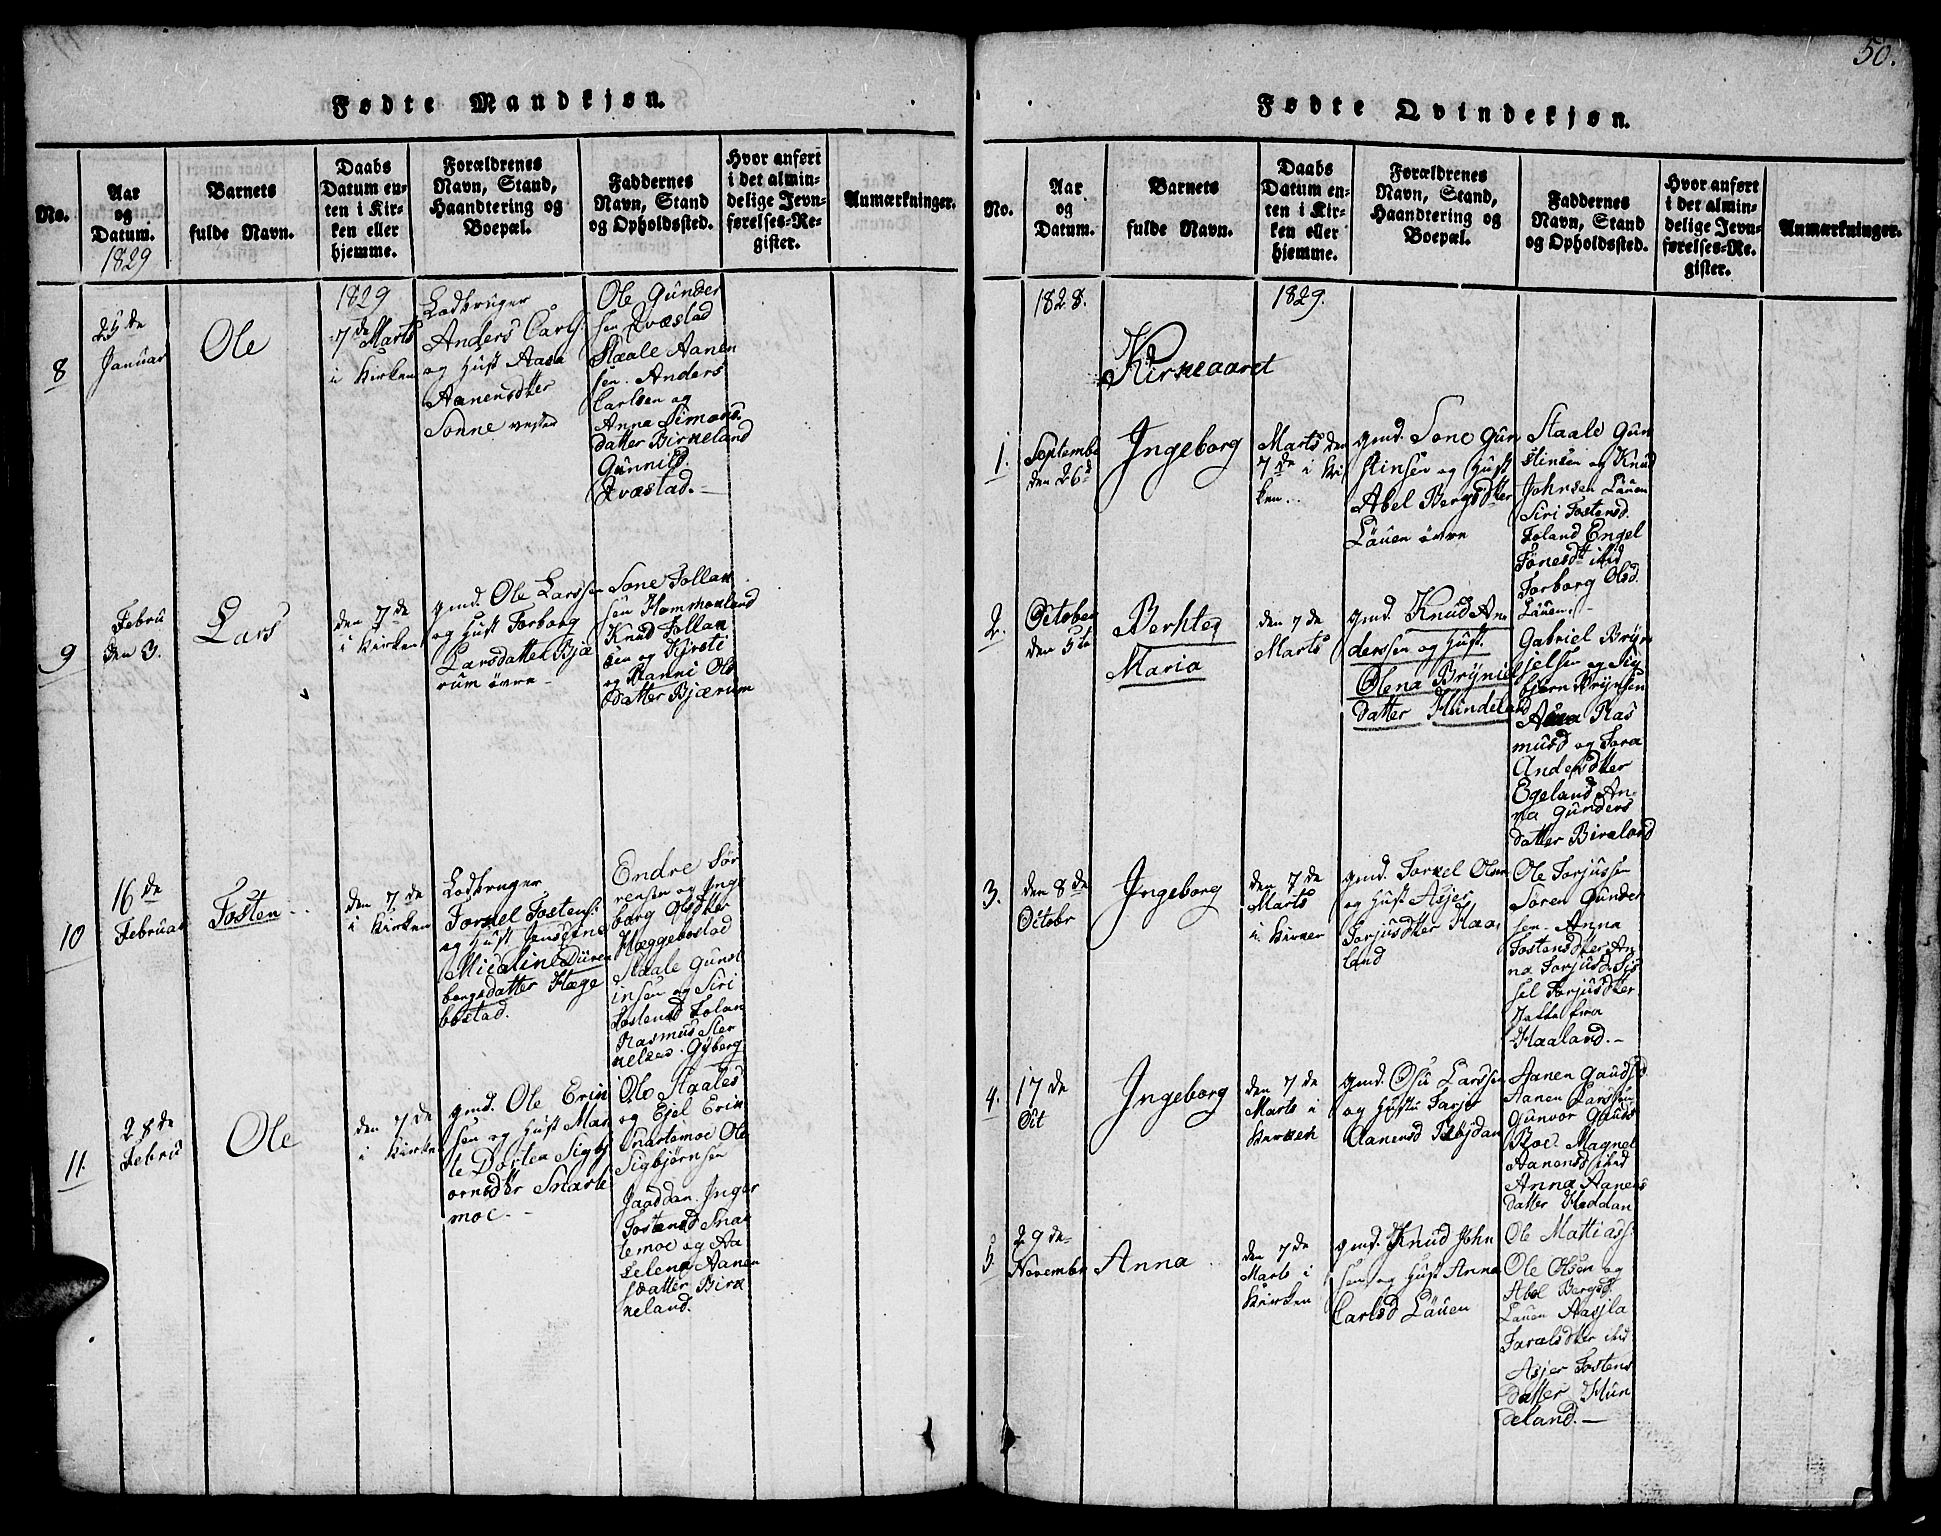 Fødte Mandkjøn.
No.
Aar
og
Datum.
1829
Barnets
fulde Navn.
Daabs
Datum en-
ten i Kir-
ken eller
hjemme.
Forældrenes
Navn, Stand,
Haandtering og
Boepæl.
Faddernes
Navn, Stand
og Opholdssted.
Hvor anført
i det almin-
delige Jevn-
førelses-Re-
gister.
Anmærkninger.
8
25de
Januar
Ole
1829
7de Marts
i Kirken
Lodbruger
Anders Carls.
og Hust Aasa
Aanensdtter
Sonne
Ole Gunder
sen Qvæstad
Staale Aanen
sen. Anders
Carlsen og
Anna Simons
datter Birkeland
Gunnild
Qvæstad.
9
Febru
den 3.
Lars
den 7de
i Kirken
gmd. Ole Larssen
og Hust Torborg
Larsdatter Bjæ
rum övre
Tollan
sen Hommeland
Knud Tollan
sen og Kjrsti
og Ranni Ols
datter Bjærum
10
16de
Februar
Tosten
den 7de
i Kirken
Lodbruger
Torkel Tostens.
og Hust Jensine
Micaline Düren
borgsdatter Hæge
bostad.
Endre Sör
rensen og Inge
borg Olsdtter
Hæggebostad
Staale Gunst
insen og Siri
Tostensd Tolan
Rasmus
Gyberg
11.
28de
Febru
Ole
den 7de
i Kirken
gmd. Ole Erik
sen og Hust Mar
te Dorten Sigbj
ornsdtr Snarte
moe.
Ole Staales
og Ejel Erik
Snartemoe Ole
Sigbjørnsen
Jaaddan. Inger
Tostensd Snar
temoe og Aa
Lelena Aanen
sdatter Birk
keland.
50.
Fødte Qvindekjøn.
No.
Aar
og
Datum.
Barnets
fulde Navn.
Daabs
Datum en-
ten i Kir-
ken eller
hjemme.
Forældrenes
Navn, Stand,
Haandtering og
Boepæl.
Faddernes
Navn, Stand
og Opholdssted.
Hvor anført
i det almin-
delige Jevn-
førelses-Re-
gister.
Anmærkninger.
1828.
1829.
1.
Septembr
den 26d
Ingeborg
Marts den
7de i Kir
ken.
gmd. Sone Gun
stinsen og Hust
Abel Bergsdtter
Läuen övre
Staale Gun
stinsen og Knud
Johnsen Läuen
Siri Tostensd.
Toland Engel
Tönesdtt ibid
Torborg Olsd.
Läuen.
2.
October
den 5te
Berthea
Maria
den 7de
Marts
gmd. Knud An
derssen og Hust.
Olena Brÿniel
datter Hundeland
Gabriel Brÿn
jelsen og Sig
bjørn Brÿnsen
Anna Ras
musd og Tora
Andersdtter
Egeland An
na Gunders
datter Birkeland
3.
den 8de
Octobr
Ingeborg
den 7de
Marts
i Kirken
gmd. Torkel Olsen
og Hust Asjer
Torjusdtter Haa
land
Ole Torjussen
Sören Gunder
sen. Anna
Tostensdtter An
na Torjusd. Sis
sel Torjusdtter
fra
Haaland.
4.
17de
Oct
Ingeborg
den 7de
Marts i
Kirken
gmd. Osu Larssen
og Hustu Torjer
Aanensd
Aanen Gauds
Aanen Larssen
Gunvor Gauds
Roe. Magnel
Aanensd ibid
Anna Aanens
datter Heddan
5.
29de
Novembr
Anna
den 7de
Marts i
Kirken
gmd. Knud John
sen og Hust Anna
Carlsd Läuen
Ole Mattiass.
Ole Olsen og
Abel Bergsd.
Läuen Aasjla
Taralsdtter ibid
Asjer Tostens
datter Hun
deland.